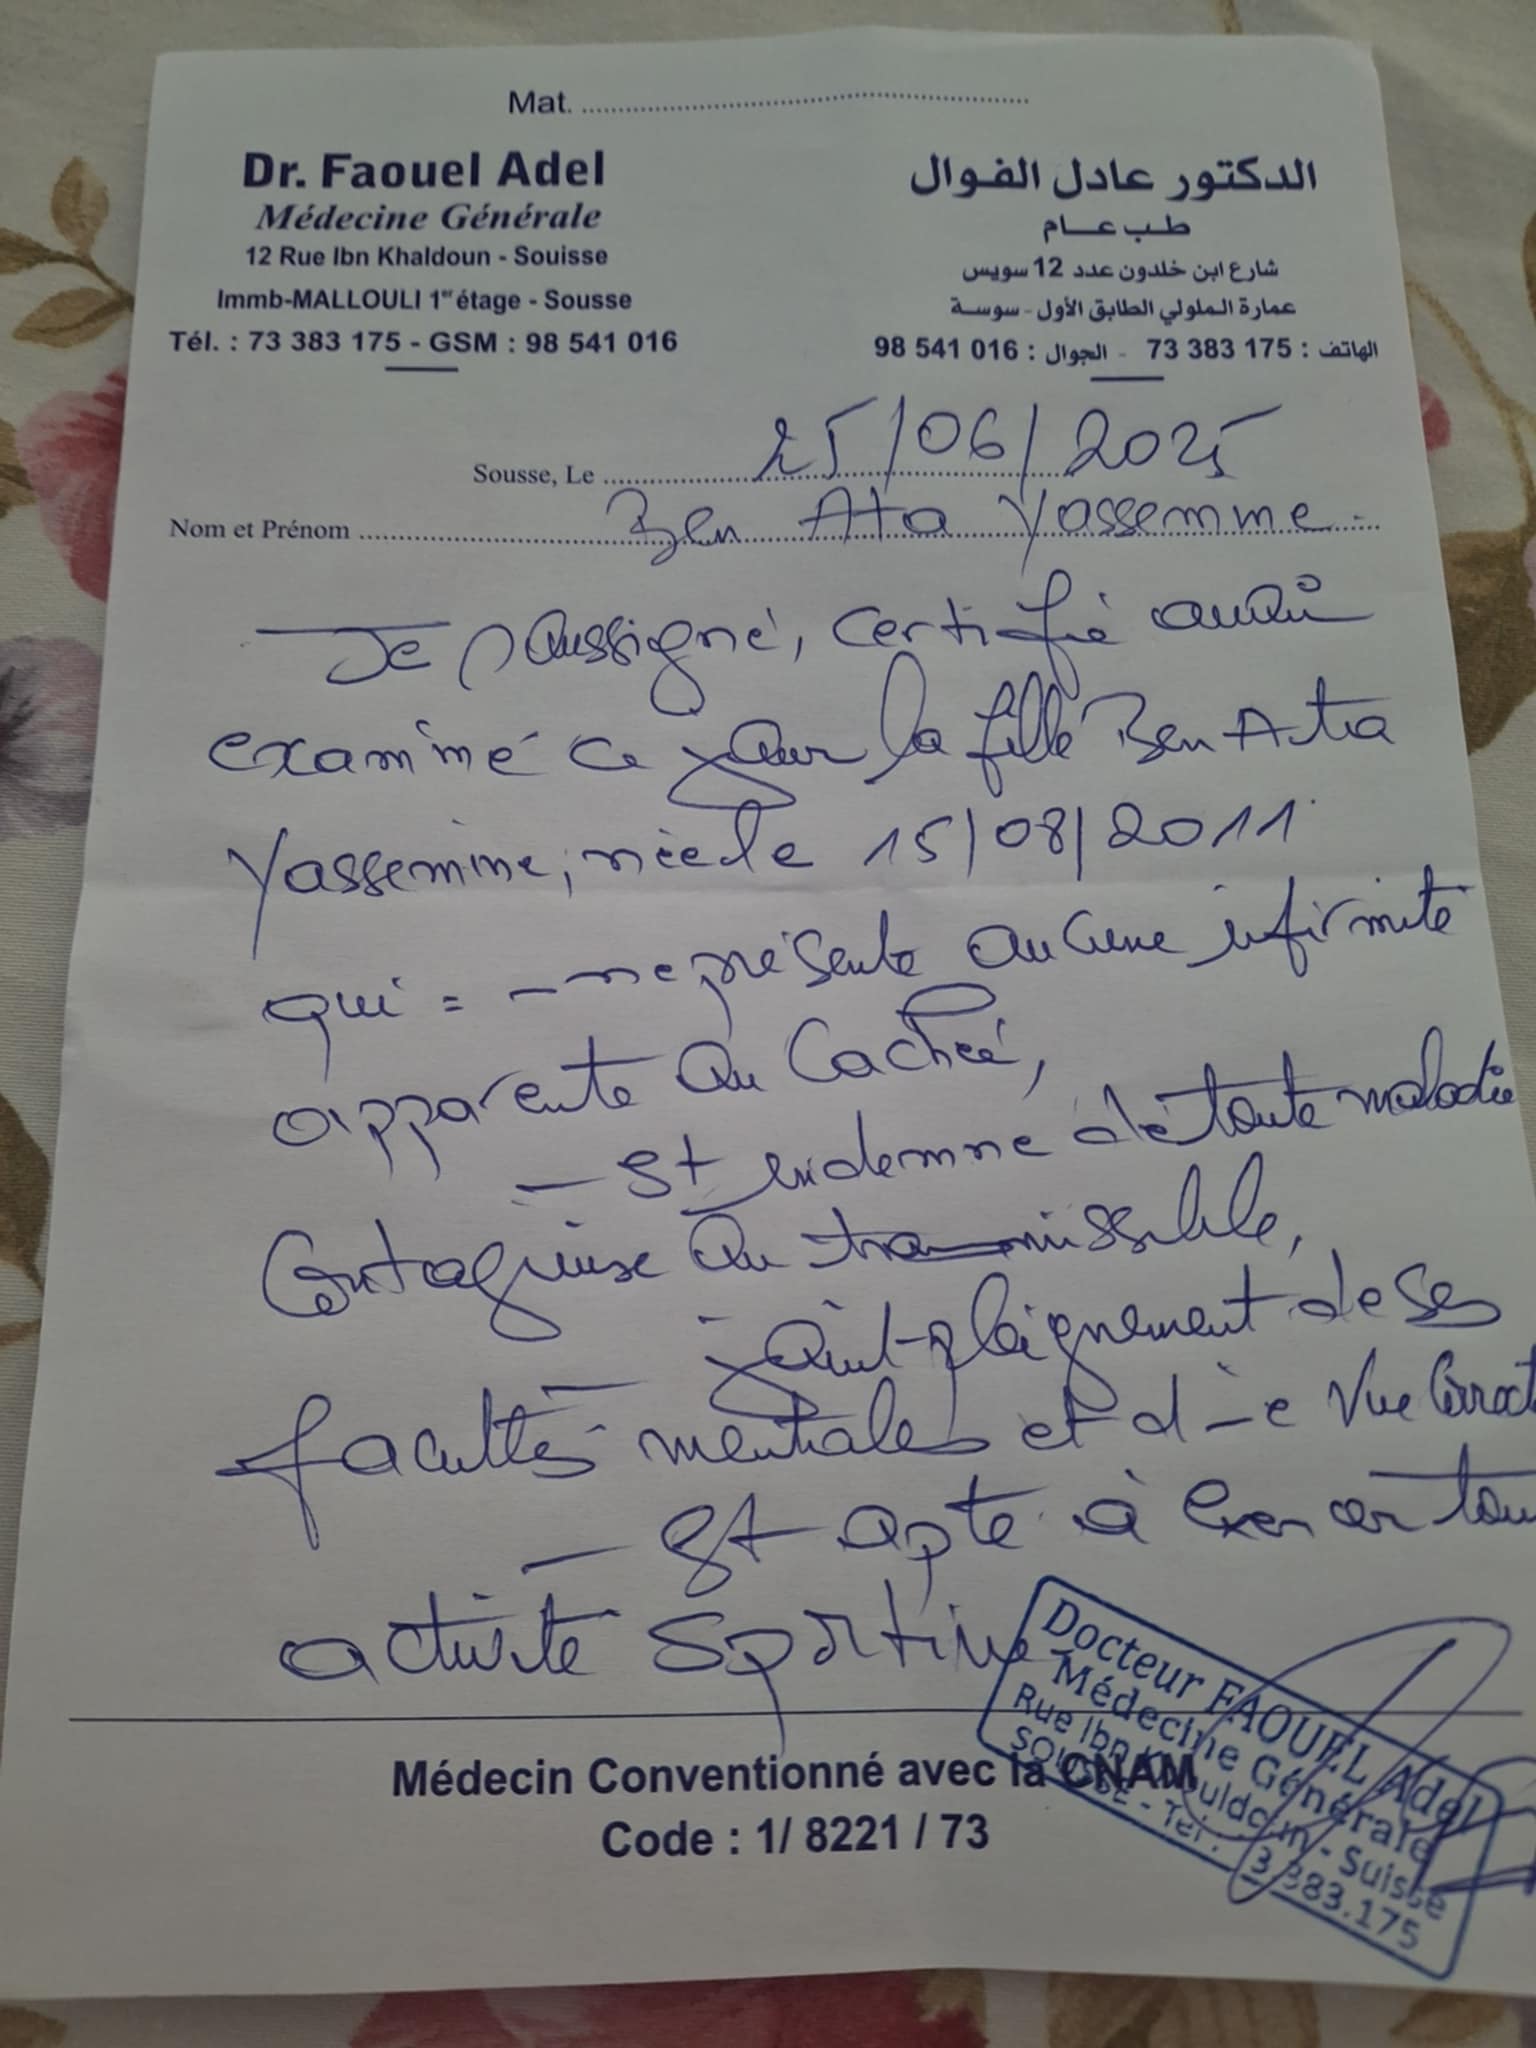 Mat. ........................................
Dr. Faouel Adel
Médecine Générale
12 Rue Ibn Khaldoun - Souisse
Immb-MALLOULI 1er étage - Sousse
Tél. : 73 383 175 - GSM : 98 541 016
الدكتور عادل الفوال
طب عام
شارع ابن خلدون عدد 12 سويس
عمارة الملولي الطابق الأول - سوسة
الهاتف : 175 383 73 - الجوال : 016 541 98
Sousse, Le 25/06/2025
Nom et Prénom Ben Ata Yassemme
Je soussigné, certifié avoir
examiné ce jour la fille Ben Atta
Yassemine, née le 15/08/2011
qui = - ne présente aucune infirmité
apparente ou cachée,
- Est indemne de toute maladie
contagieuse ou transmissible,
- jouit pleignement de ses
facultés mentales et d'une vue correct
- Est apte à exercer tou
activité sportive
Médecin Conventionné avec la CNAM
Code : 1/ 8221 / 73
Docteur FAOUEL Adel
Médecine Générale
Rue Ibn Khouldoun - Suisse
SOUSSE - Tel. 3.383.175